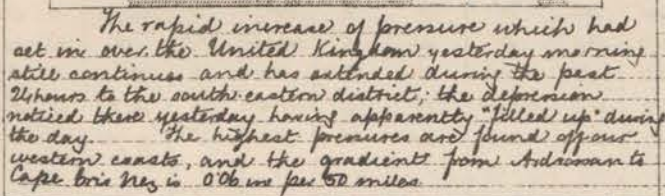 The rapid increase of pressure which had
set in over the United Kingdom yesterday morning
still continues and has extended during the past
24 hours to the south-eastern district; the depression
noticed there yesterday having apparently "filled up" during
the day. The highest pressures are found off our
western coasts, and the gradient from Ardrossan to
Cape Gris Nez is 0.06 in per 50 miles